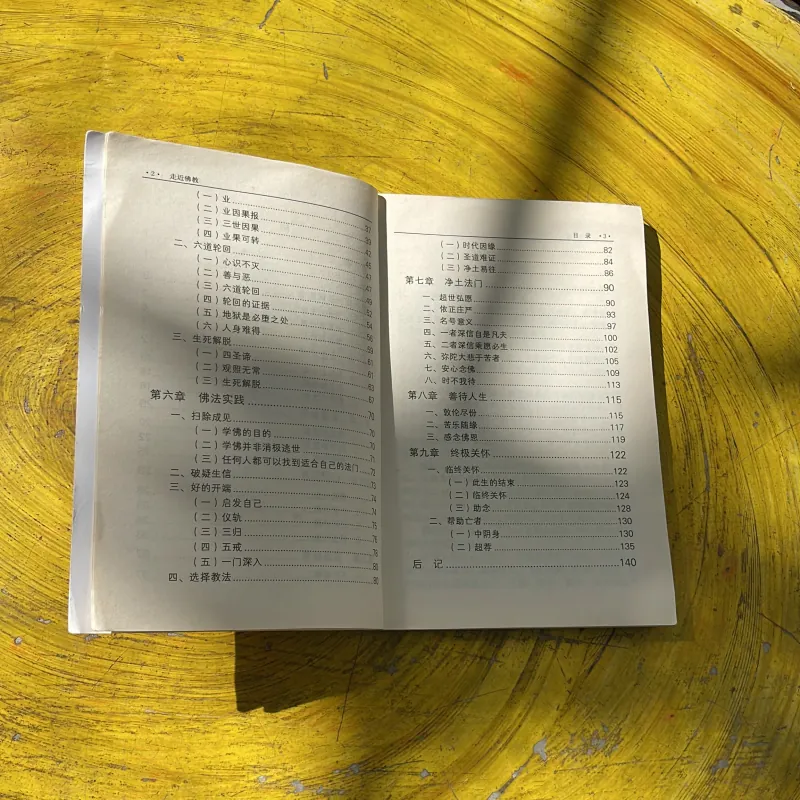 ·2· 走近佛教
（一）业 37
（二）业因果报 39
（三）三世因果 42
（四）业果可转 46
二、六道轮回 47
（一）心识不灭 47
（二）善与恶 49
（三）六道轮回 52
（四）轮回的证据 54
（五）地狱是必堕之处 56
（六）人身难得 59
三、生死解脱 61
（一）四圣谛 61
（二）观照无常 63
（三）生死解脱 67
第六章 佛法实践 70
一、扫除成见 70
（一）学佛的目的 70
（二）学佛并非消极逃世 71
（三）任何人都可以找到适合自己的法门 72
二、破疑生信 73
三、好的开端 74
（一）启发自己 74
（二）仪轨 75
（三）三归 76
（四）五戒 78
（五）一门深入 80
四、选择教法 80
目 录 ·3·
（一）时代因缘 82
（二）圣道难证 84
（三）净土易往 86
第七章 净土法门 90
一、超世弘愿 90
二、依正庄严 93
三、名号意义 97
四、一者深信自是凡夫 100
五、二者深信乘愿必生 102
六、弥陀大悲于苦者 105
七、安心念佛 109
八、时不我待 113
第八章 善待人生 115
一、敦伦尽份 115
二、苦乐随缘 117
三、感念佛恩 119
第九章 终极关怀 122
一、临终关怀 122
（一）此生的结束 123
（二）临终关怀 124
（三）助念 128
二、帮助亡者 130
（一）中阴身 130
（二）超荐 135
后 记 140